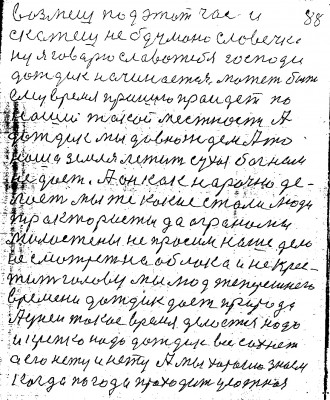 возмеш под этот час и 88
скажеш необдумано словечко
ну я говарю слава тебя господи
дождик начинается может быть
ему время пришло праидет по
нашій такой местности А
дождик мы давно ждем Ато
наша земля лежит сухая бог нам
не дает. А он как нарочно де-
лает мы те какие стали люди
трактористы да аграномы
милостены не просим наше дело
не смотреть на облака и не крес-
тить голову мы люд теперешнего
времени дождик дает природа
А у ней такое время делостья надо
и крепко надо дождик все сохнет
а его нету и нету А мы харашо знаем
когда погода праходит